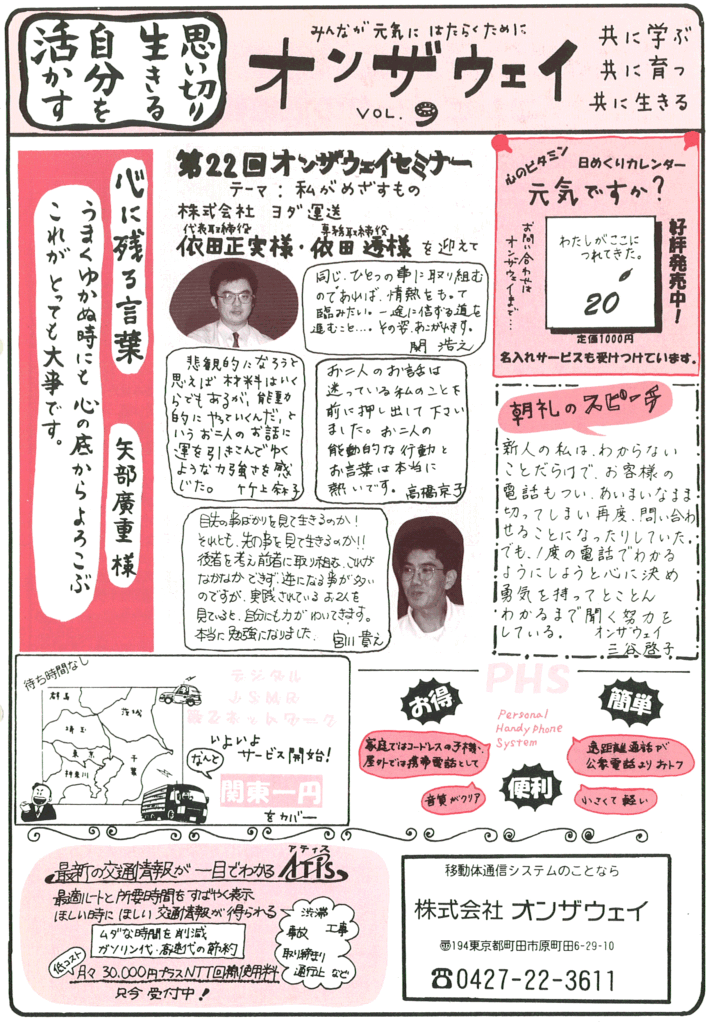 思い切り
生きる
自分を
活かす
みんなが元気に はたらくために
オンザウェイ
VOL. 9
共に学ぶ
共に育つ
共に生きる
心に残る言葉
矢部廣重 様
うまくゆかぬ時にも 心の底からよろこぶ
これが とっても大事です。
第22回オンザウェイセミナー
テーマ：私がめざすもの
株式会社 ヨダ運送
代表取締役 専務取締役
依田正実様・依田 透様 を迎えて
同じ、ひとつの事に取り組む
のであれば、情熱をもって
臨みたい。一途に信ずる道を
進むこと…。その姿、あこがれます。
関 浩え
悲観的になろうと
思えば材料はいく
らでもあるが、能動
的にやっていくんだ、と
いうお二人のお話に
運を引きこんでゆく
ような力強さを感
じた。 竹上麻子
お二人のお話は
迷っている私のことを
前に押し出して下さい
ました。お二人の
能動的な行動と
お言葉は本当に
熱いです。 高橋京子
目先の事ばかりを見て生きるのか！
それとも、先の事を見て生きるのか!!
後者を考え前者に取り組む、これが
なかなかできず、逆になる事が多い
のですが、実践されているお2人を
見ていると、自分にも力がわいてきます。
本当に勉強になりました。 宮川貴え
心のビタミン 日めくりカレンダー
元気ですか？
お問い合わせは
オンザウェイまで…
わたしがここに
つれてきた。
20
好評発売中！
定価1000円
名入れサービスも受けつけています。
朝礼のスピーチ
新人の私は、わからない
ことだらけで、お客様の
電話もつい、あいまいなまま
切ってしまい再度、問い合わ
せることになったりしていた。
でも、1度の電話でわかる
ようにしようと心に決め
勇気を持ってとことん
わかるまで聞く努力を
している。 オンザウェイ
三谷啓子
待ち時間なし
群馬
茨城
埼玉
東京
神奈川
千葉
デジタル
いよいよ
サービス開始！
なんと
関東一円
をカバー
PHS
Personal
Handyphone
System
お得
簡単
便利
家庭ではコードレスの子機、
屋外では携帯電話として
遠距離通話が
公衆電話よりおトク
音質がクリア
小さくて軽い
最新の交通情報が一目でわかる アティス ATIS
最適ルートと所要時間をすばやく表示
ほしい時に ほしい 交通情報が得られる
ムダな時間を削減
ガソリン代・高速代の節約
渋滞
事故 工事
取り締まり
通行止 など
低コスト
月々30.000円プラスNTT回線使用料
只今 受付中！
移動体通信システムのことなら
株式会社 オンザウェイ
〠194東京都町田市原町田6-29-10
☎0427-22-3611